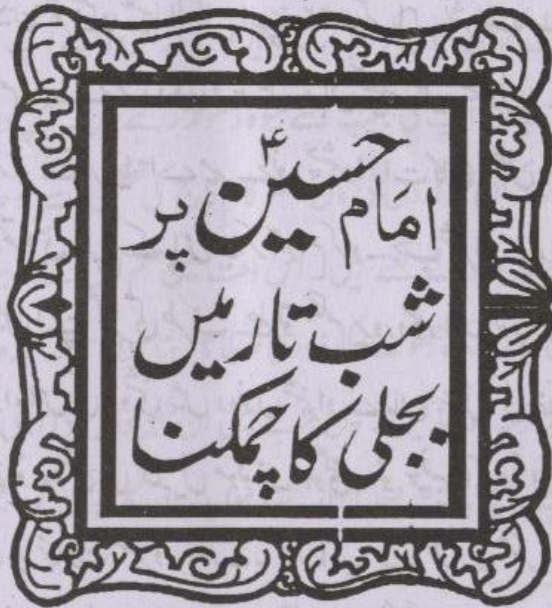 امام حسینؑ پر
شب تار میں
بجلی کا چمکنا